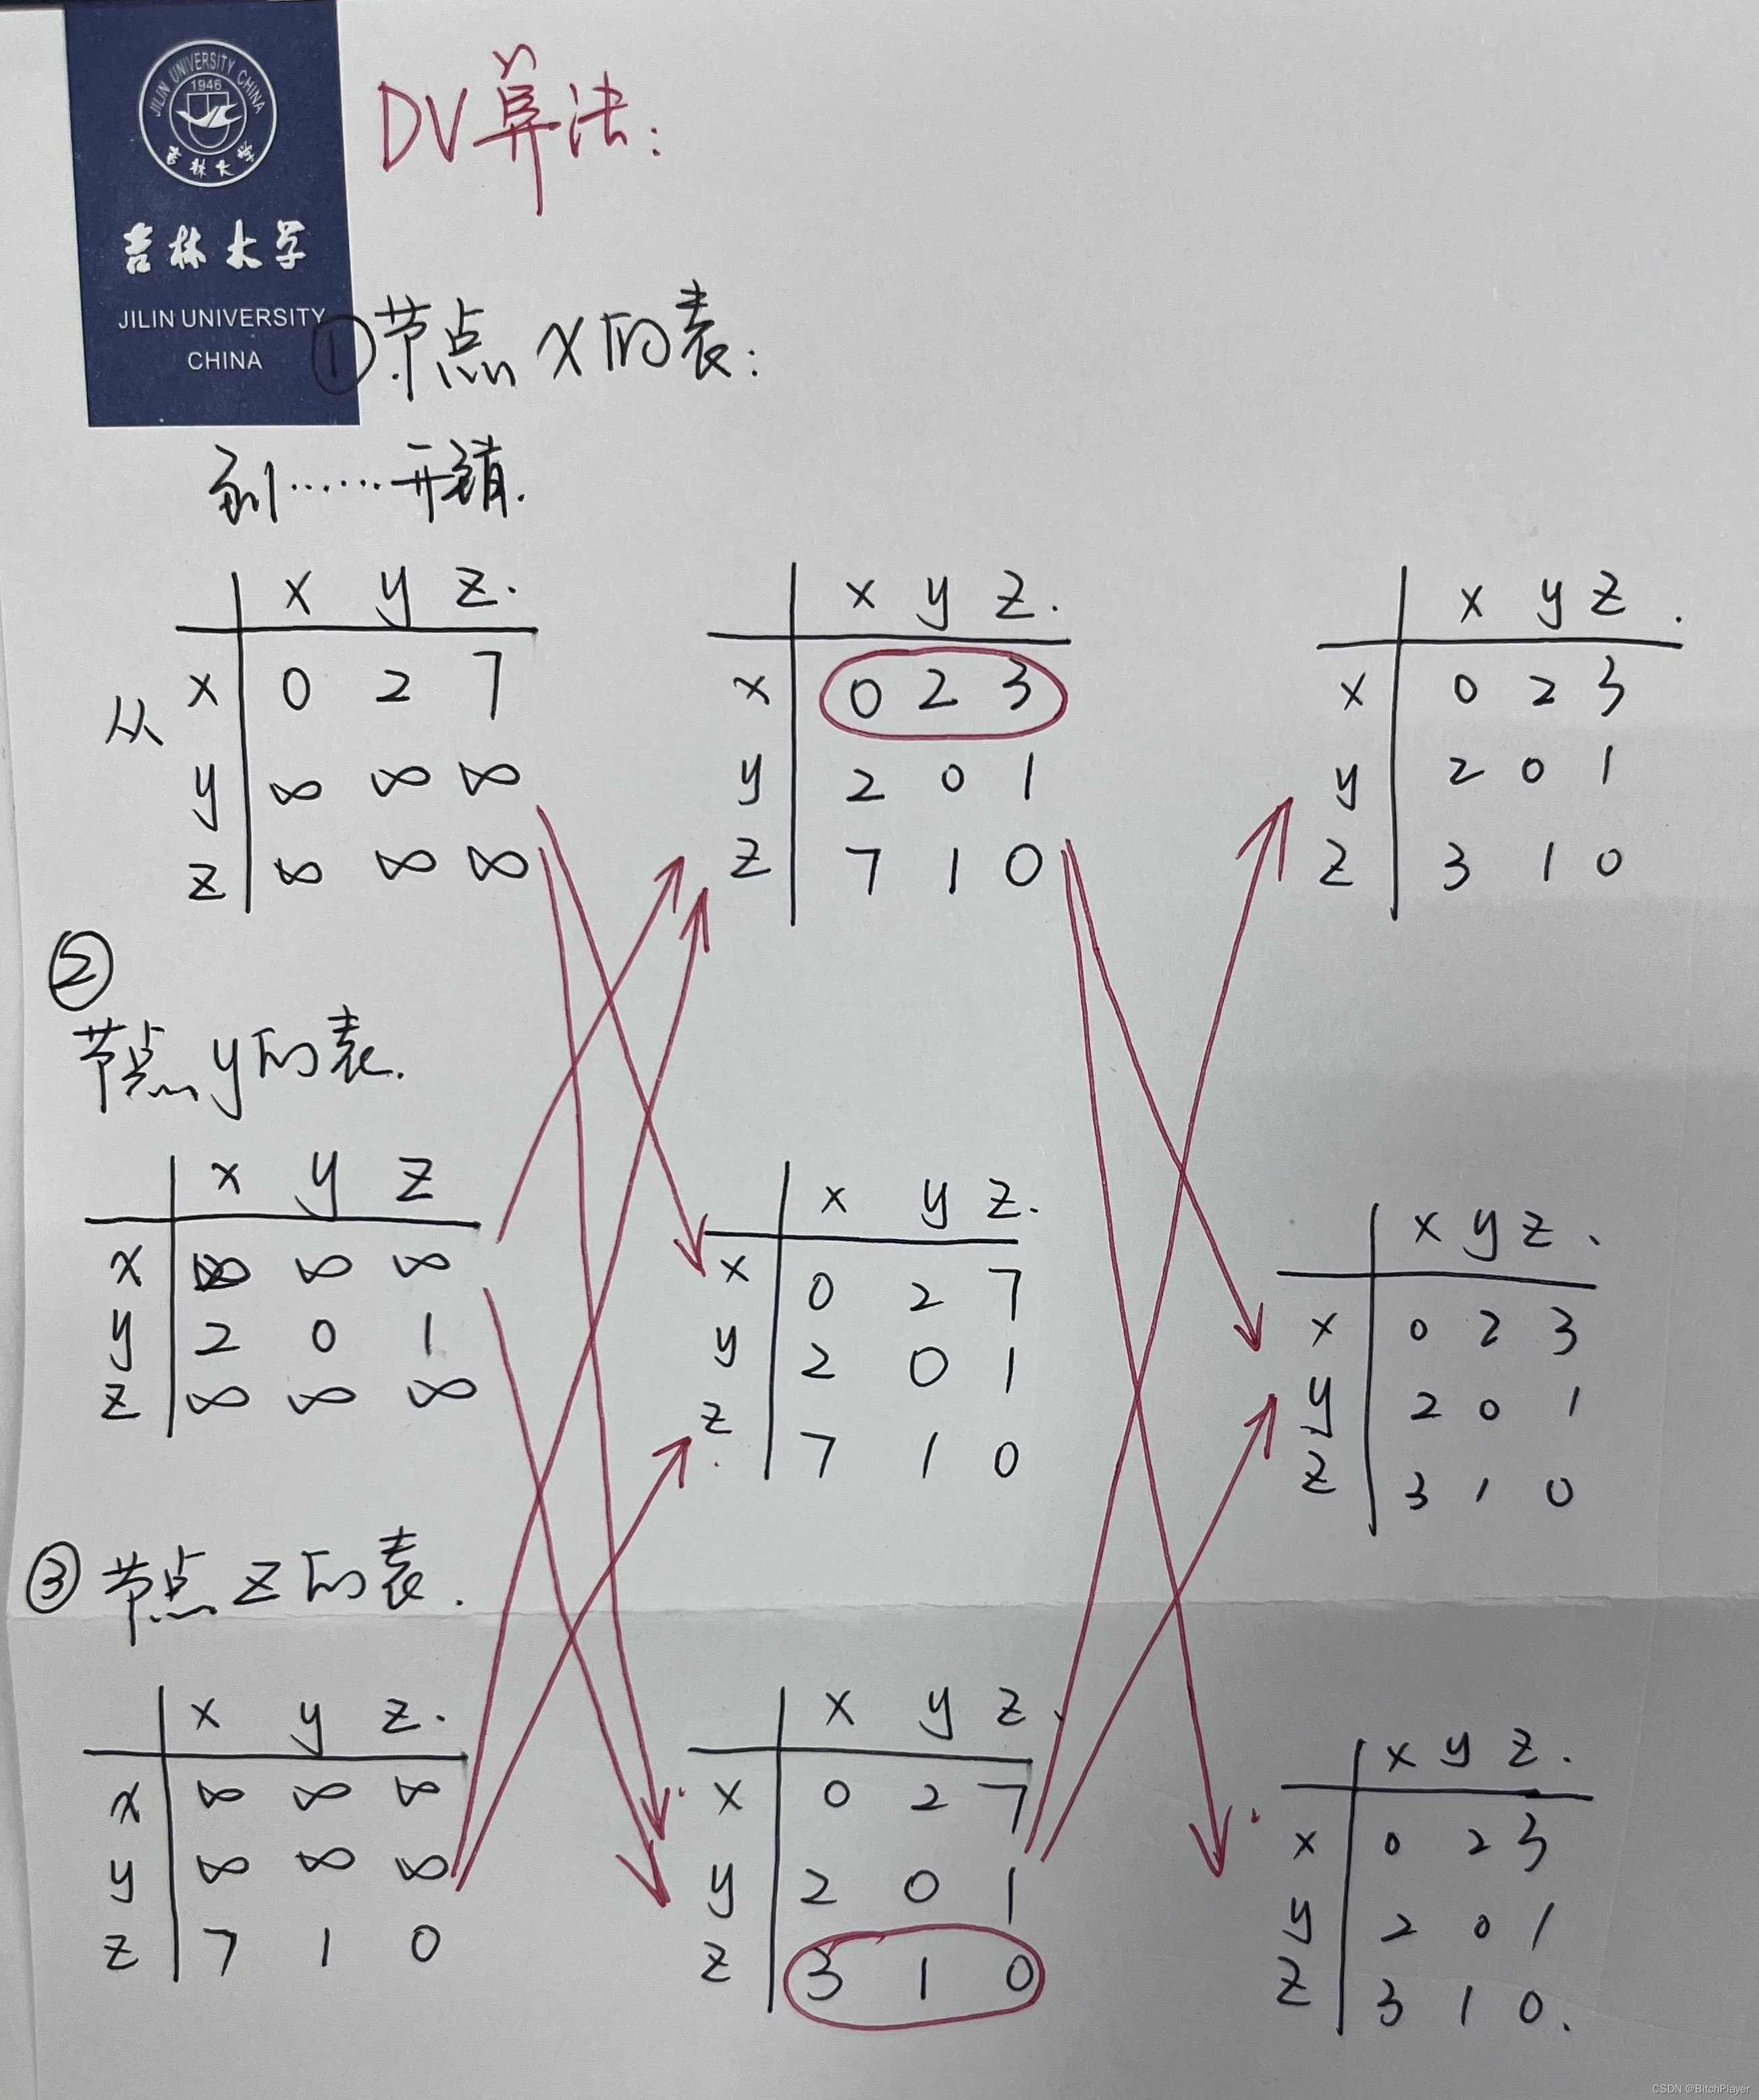 JILIN UNIVERSITY CHINA
1946
吉林大学
吉林大学
JILIN UNIVERSITY
CHINA
DV算法:
①节点x的表:
到……开销.
x y z.
从
x 0 2 7
y ∞ ∞ ∞
z ∞ ∞ ∞
x y z.
x 0 2 3
y 2 0 1
z 7 1 0
x y z.
x 0 2 3
y 2 0 1
z 3 1 0
②
节点y的表.
x y z
x ∞ ∞ ∞
y 2 0 1
z ∞ ∞ ∞
x y z.
x 0 2 7
y 2 0 1
z 7 1 0
x y z.
x 0 2 3
y 2 0 1
z 3 1 0
③节点z的表.
x y z.
x ∞ ∞ ∞
y ∞ ∞ ∞
z 7 1 0
x y z.
x 0 2 7
y 2 0 1
z 3 1 0
x y z.
x 0 2 3
y 2 0 1
z 3 1 0.
CSDN @BitchPlayer